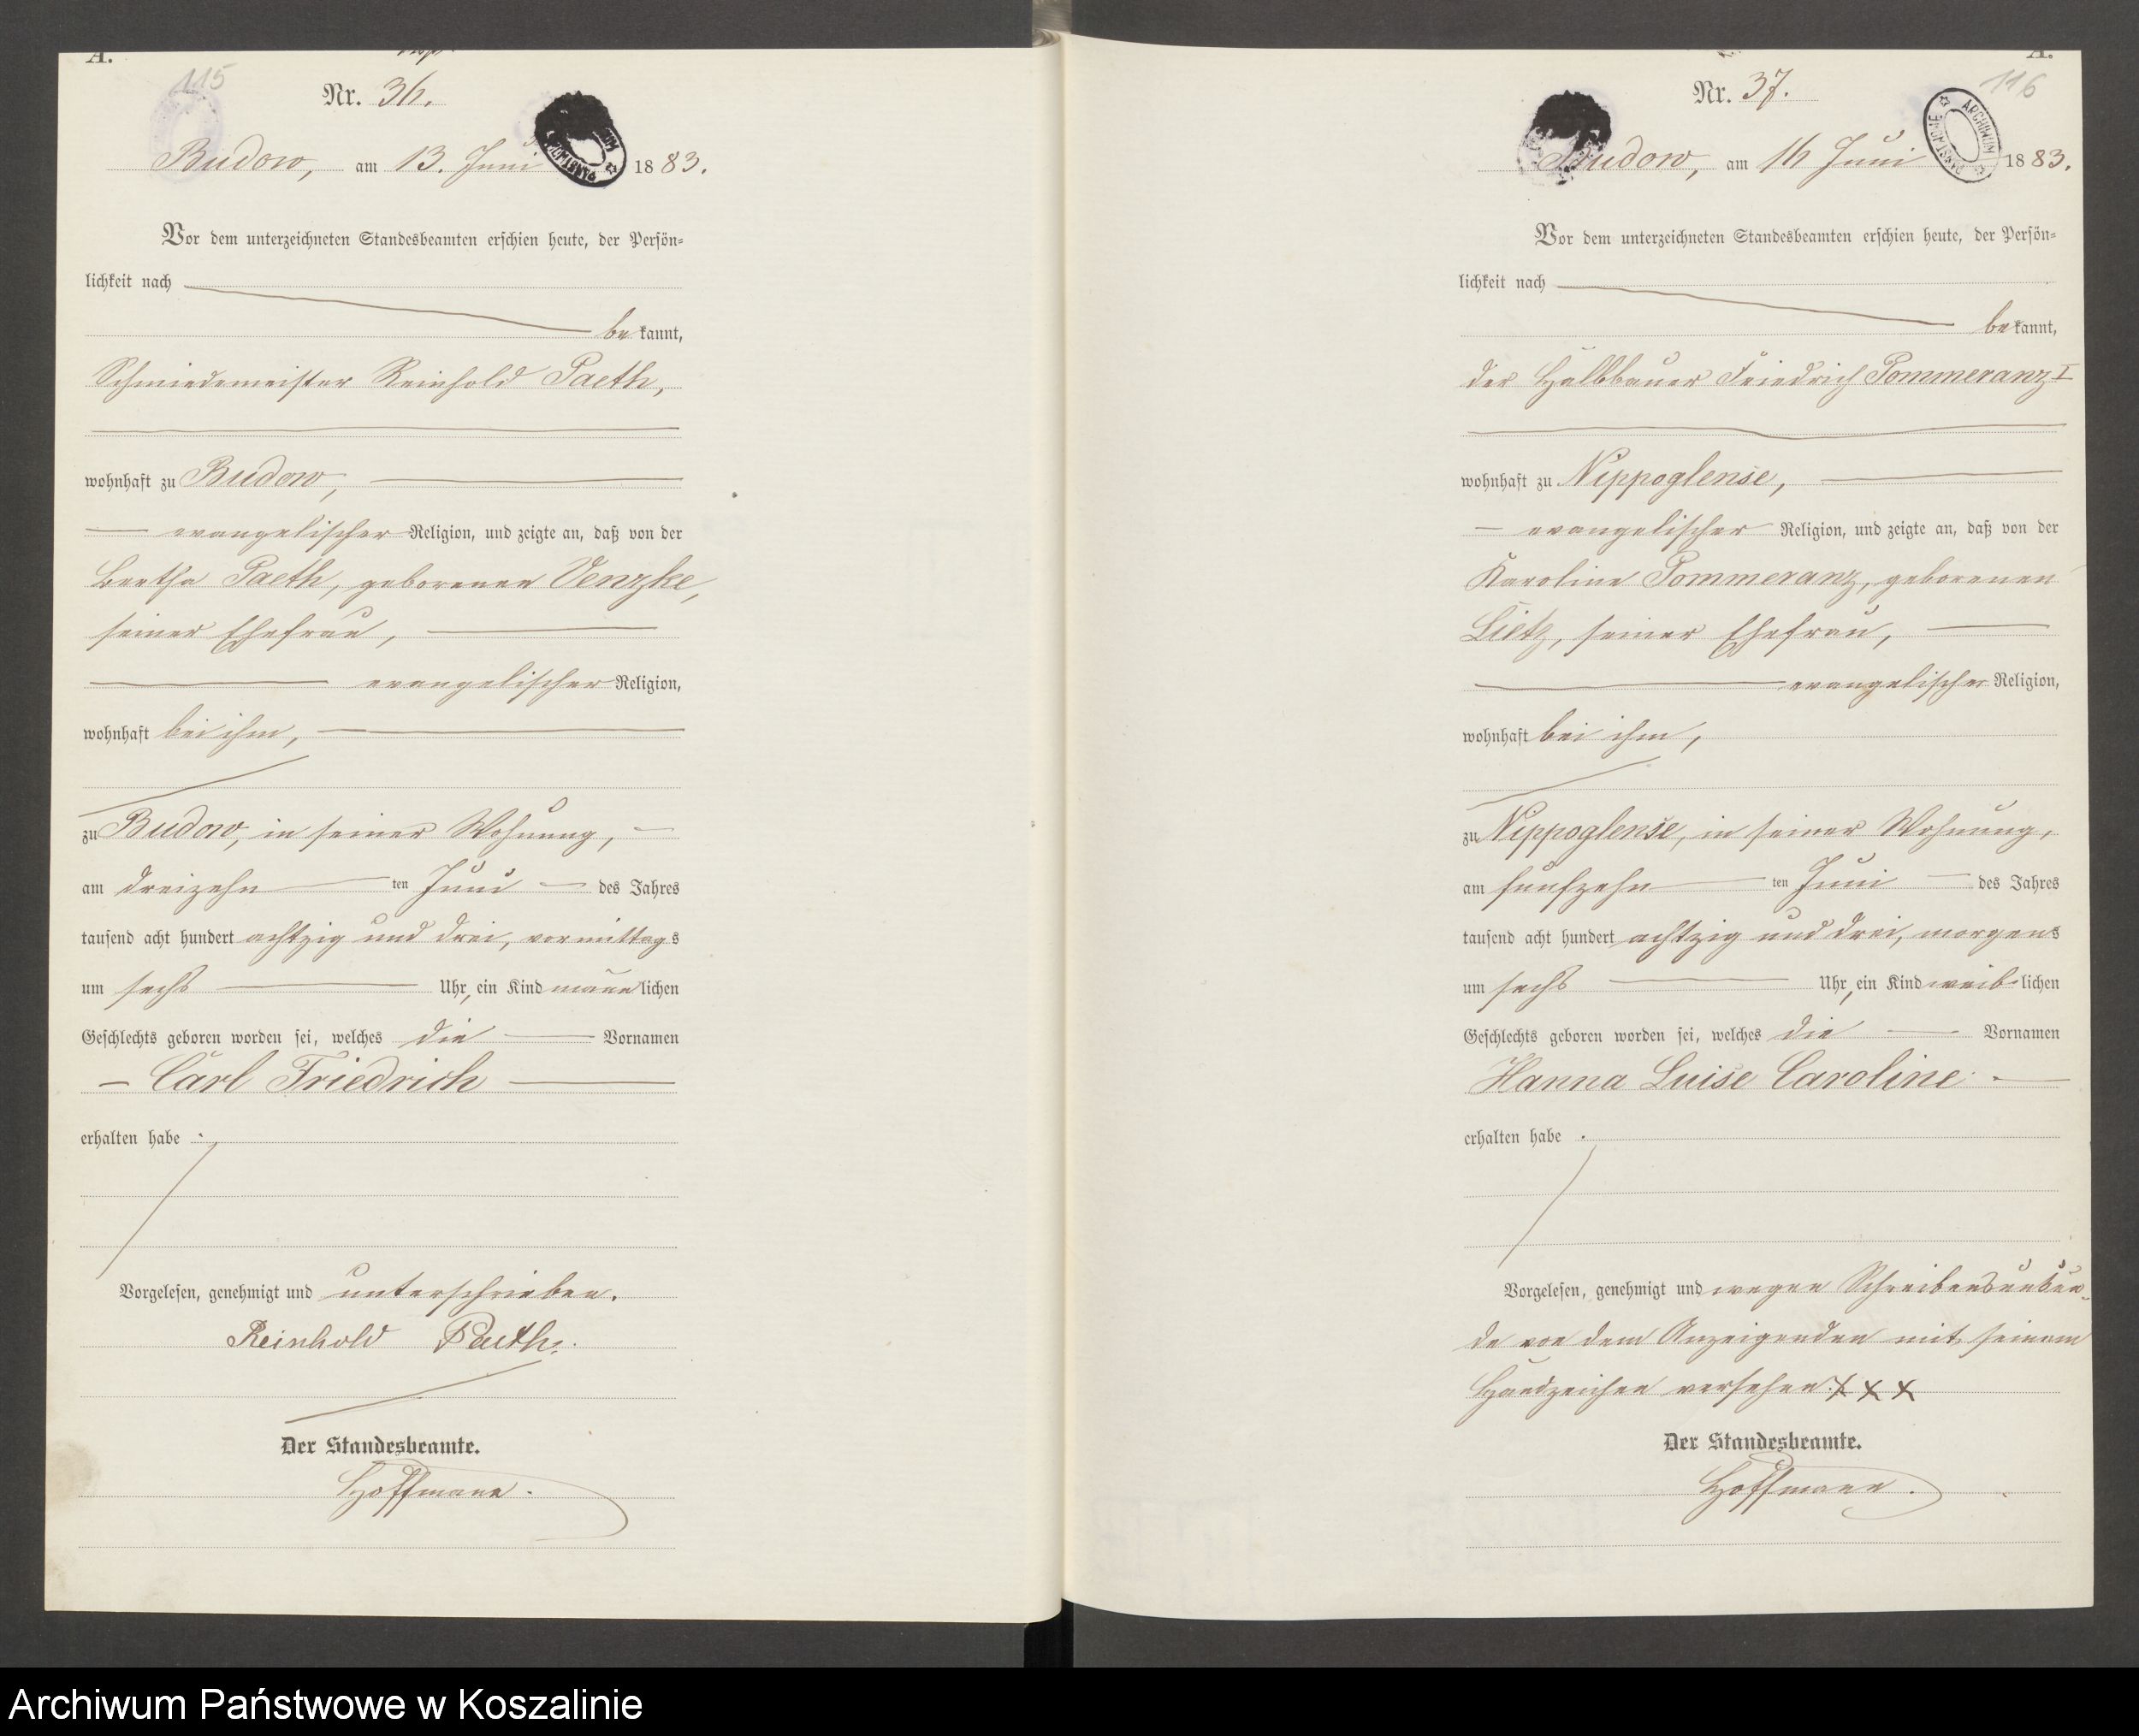 A.
115
Nr. 36.
Budow, am 13. Juni 1883.
Vor dem unterzeichneten Standesbeamten erschien heute, der Persön-
lichkeit nach
bekannt,
Schmiedemeister Reinhold Paeth,
wohnhaft zu Budow,
evangelischer Religion, und zeigte an, daß von der
Bertha Paeth, geborenen Venzke,
seiner Ehefrau,
evangelischer Religion,
wohnhaft bei ihm,
zu Budow, in seiner Wohnung,
am dreizehn ten Juni des Jahres
tausend acht hundert achtzig und drei, vormittags
um sechs Uhr, ein Kind männlichen
Geschlechts geboren worden sei, welches die Vornamen
Carl Friedrich
erhalten habe.
Vorgelesen, genehmigt und unterschrieben.
Reinhold Paeth.
Der Standesbeamte.
Hoffmann.
A.
116
Nr. 37.
ARCHIWUM PAŃSTWOWE
Budow, am 16 Juni 1883.
Vor dem unterzeichneten Standesbeamten erschien heute, der Persön-
lichkeit nach
bekannt,
der Halbbauer Friedrich Pommeranz I
wohnhaft zu Nippoglense,
evangelischer Religion, und zeigte an, daß von der
Karoline Pommeranz, geborenen
Lietz, seiner Ehefrau,
evangelischer Religion,
wohnhaft bei ihm,
zu Nippoglense, in seiner Wohnung,
am fünfzehn ten Juni des Jahres
tausend acht hundert achtzig und drei, morgens
um sechs Uhr, ein Kind weiblichen
Geschlechts geboren worden sei, welches die Vornamen
Hanna Luise Caroline
erhalten habe.
Vorgelesen, genehmigt und wegen Schreibensunkun-
de von dem Anzeigenden mit seinem
Handzeichen versehen. x x x
Der Standesbeamte.
Hoffmann.
Archiwum Państwowe w Koszalinie